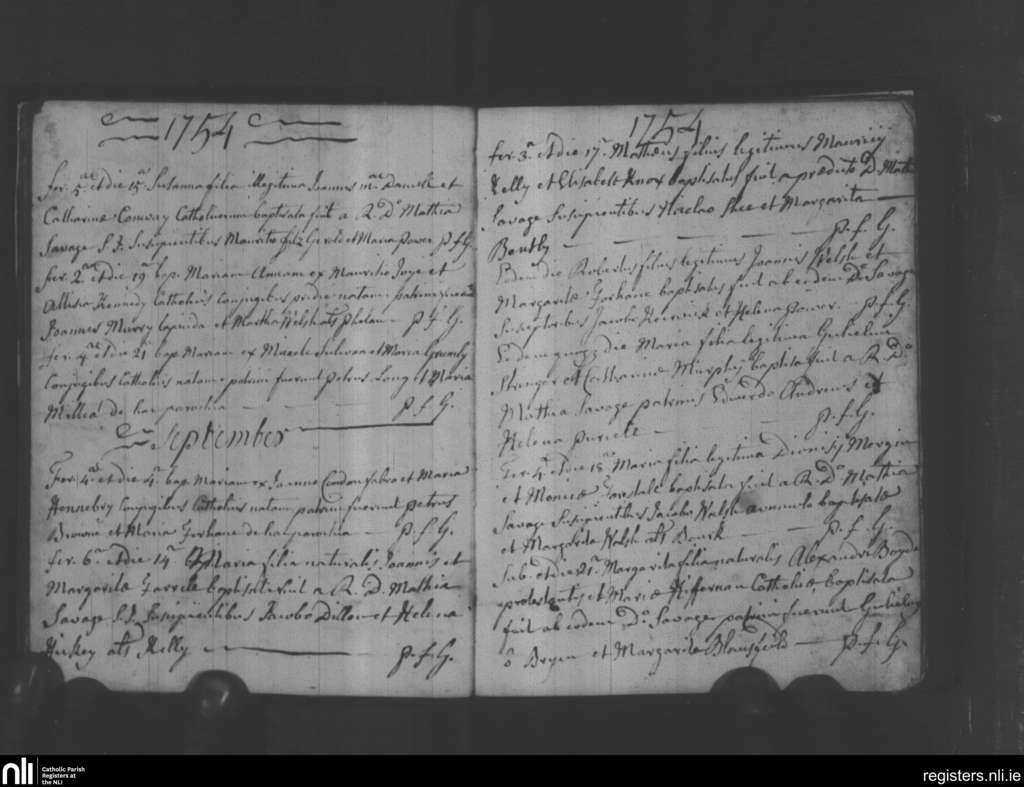 1754
fer. 5ae et die 15a Susanna filia illegitima Joannis mc Daniell et
Catharinæ Conway Catholicorum baptisata fuit a R. Do Mathia
Savage S. J. Suscipientibus Mauritio fitz Gerald et Maria Power P. f. G.
fer. 2a et die 19a bap. Mariam Annam ex Mauritio Joye et
Allisia Kennedy Catholicis Conjugibus pridie natam patrini fuerunt
Joannes Murry lapicida et Martha Welsh als Phelan — P. f. G.
fer. 4a et die 21a bap. Mariam ex Michaele Sulivan et Maria
Conjugibus Catholicis natam patrini fuerunt Petrus Long et Maria
Millea de hac parochia — P. f. G.
September
Fer. 4ae et die 4a bap. Mariam ex Joanne Condon fabro et Maria
Hennebry Conjugibus Catholicis natam, patrini fuerunt Petrus
Browne et Maria Gorhane de hac parochia — P. f. G.
fer. 6ae et die 14a Maria filia naturalis Joannis et
Margaritæ baptisata fuit a R. D. Mathia
Savage S. J. Suscipientibus Jacobo Dillon et Helena
Hickey als Kelly — P. f. G.
1754
fer. 3a et die 17a Matheus filius legitimus Mauritij
Kelly et Elisabeth Knox baptisatus fuit a prædicto D. Math:
Savage Suscipientibus Shee et Margarita
Bently — P. f. G.
Eodem die Robertus filius legitimus Joannis Welsh et
Margaritæ Gorhane baptisatus fuit ab eodem Do Savage
Susceptoribus Jacobo et Helena Power — P. f. G.
Eodem quoqz die Maria filia legitima Gulielmi
Stronger et Catharinæ Murphy baptisata fuit a R. Do
Mathia Savage patrinis Eduardo Andrews et
Helena Purcell — P. f. G.
Fer. 4a et die 18a Maria filia legitima Dionisij
et Monicæ Forestall baptisata fuit a R. Do Mathia
Savage Suscipientibus Jacobo Walsh avunculo baptisatæ
et Margarita Walsh als — P. f. G.
Sab. et die 21a Margarita filia naturalis Alexandri Boyde
protestantis et Mariæ Heffernan Catholicæ baptisata
fuit ab eodem Do Savage patrini fuerunt Gulielmus
ô Bryen et Margarita — P. f. G.
nli
Catholic Parish
Registers at
the NLI
registers.nli.ie